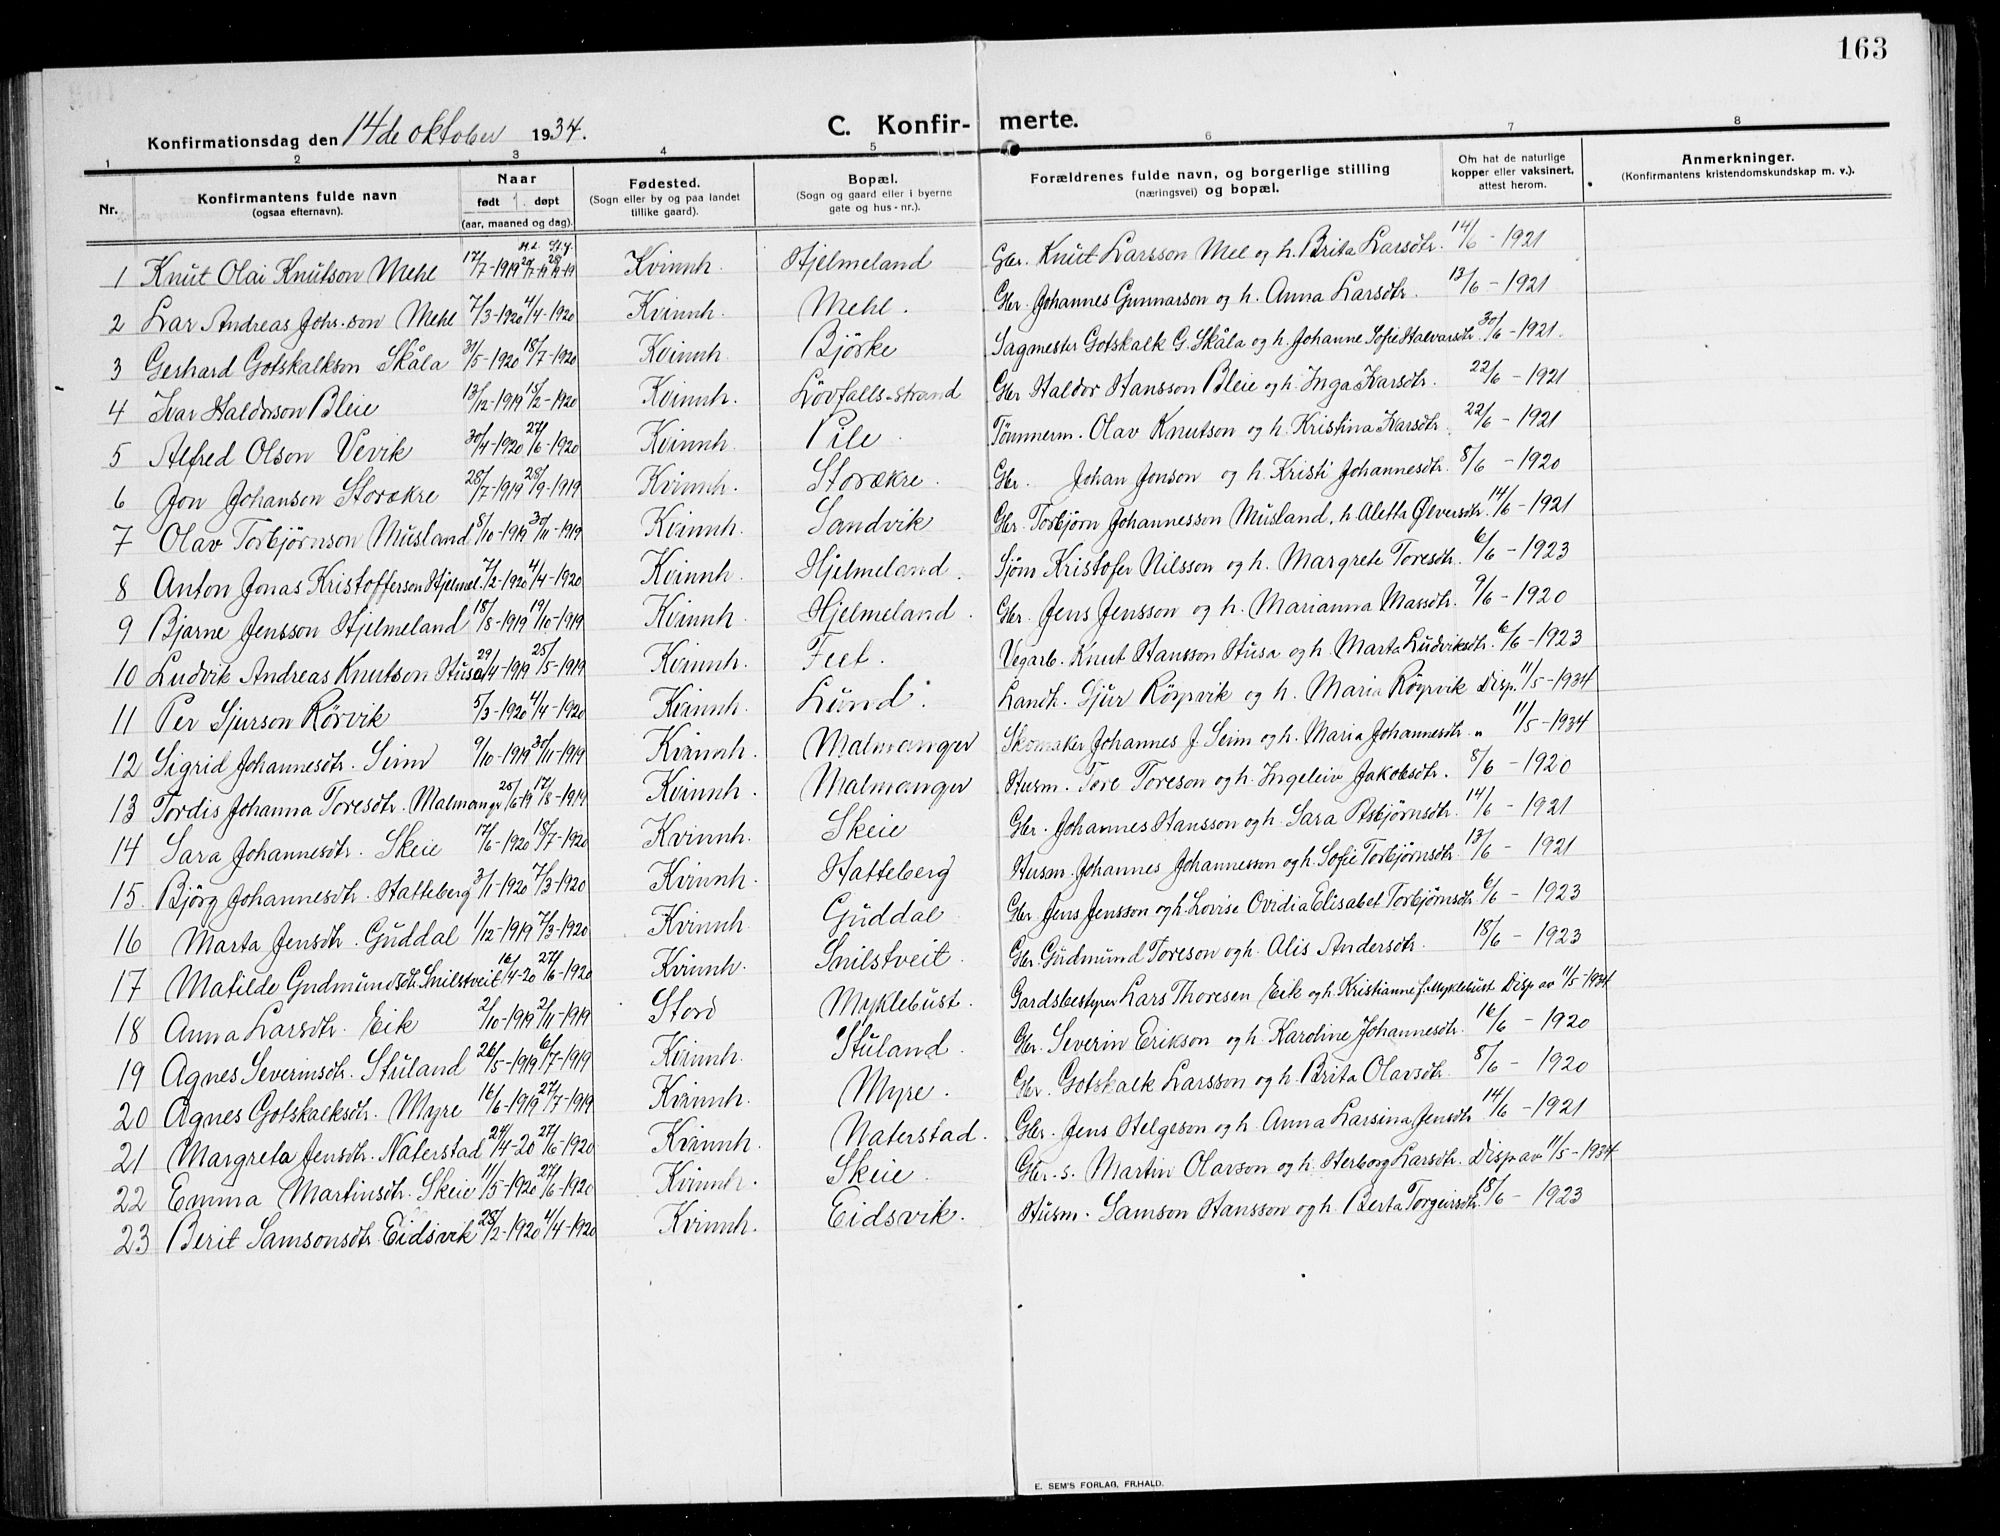 163
Konfirmationsdag den 14de oktober 1934.
C. Konfir- merte.
1 2 3 4 5 6 7 8
Nr. Konfirmantens fulde navn (ogsaa efternavn). Naar født døpt (aar, maaned og dag). Fødested. (Sogn eller by og paa landet tillike gaard). Bopæl. (Sogn og gaard eller i byerne gate og hus-nr.). Forældrenes fulde navn, og borgerlige stilling (næringsvei) og bopæl. Om hat de naturlige kopper eller vaksinert, attest herom. Anmerkninger. (Konfirmantens kristendomskundskap m. v.).
1 Knut Olai Knutson Mehl 17/7-1919 Kvinnh. Hjelmeland Gbr. Knut Larsson Mel og h. Brita Larsdtr. 14/6 - 1921
2 Lar Andreas Johs.son Mehl 7/3-1920 4/4-1920 Kvinnh. Mehl. Gbr. Johannes Gunnarson og h. Anna Larsdtr. 13/6 - 1921
3 Gerhard Gotskalkson Skåla 31/5-1920 18/7-1920 Kvinnh. Björke Sagmester Gotskalk G. Skåla og h. Johanne Sofie Halvarsdtr. 30/6 - 1921.
4 Ivar Haldorson Bleie 13/12-1919 15/2-1920 Kvinnh. Lövfalls-strand Gbr Haldor Hansson Bleie og h. Inga Ivarsdtr. 22/6 - 1921
5 Alfred Olson Vevik 30/4-1920 27/6-1920 Kvinnh. Pile. Tömmerm. Olav Knutson og h. Kristina Ivarsdtr. 22/6 - 1921
6 Jon Johanson Storækre 28/7-1919 28/9-1919 Kvinnh. Storækre. Gbr. Johan Jonson og h. Kristi Johannesdtr. 8/6 - 1920
7 Olav Torbjörnson Musland 8/10-1919 30/11-1919 Kvinnh. Sandvik Gbr. Torbjörn Johannesson Musland, h. Aletta Ølversdtr. 14/6 - 1921
8 Anton Jonas Kristofferson Hjelmel. 7/2-1920 4/4-1920 Kvinnh. Hjelmeland. Sjöm Kristofer Nilsson og h. Margrete Toresdtr. 6/6 - 1923
9 Bjarne Jensson Hjelmeland 18/8-1919 19/10-1919 Kvinnh. Hjelmeland. Gbr. Jens Jensson og h. Marianna Massdtr. 9/6 - 1920
10 Ludvik Andreas Knutson Husa 29/4-1919 25/5-1919 Kvinnh. Feet. Vegarb. Knut Hansson Husa og h. Marta Ludviksdtr. 6/6 - 1923
11 Per Sjurson Rörvik 5/3-1920 4/4-1920 Kvinnh. Lund. Landh. Sjur Röyrvik og h. Maria Röyrvik Disp. 11/5 - 1934
12 Sigrid Johannesdtr. Seim 9/10-1919 30/11-1919 Kvinnh. Malmanger Skomaker Johannes J. Seim og h. Maria Johannesdtr. " 11/5 - 1934
13 Tordis Johanna Toresdtr. Malmanger 25/6-19 17/8-1919 Kvinnh. Malmanger Husm. Tore Toreson og h. Ingeleiv Jakobsdtr. 8/6 - 1920
14 Sara Johannesdtr. Skeie 17/6-1920 18/7-1920 Kvinnh. Skeie Gbr. Johannes Hansson og h. Sara Asbjörnsdtr. 14/6 - 1921
15. Björg Johannesdtr. Hatteberg 31/1-1920 7/3-1920 Kvinnh. Hatteberg Husm. Johannes Johannesson og h. Sofie Torbjörnsdtr. 13/6 - 1921
16 Marta Jensdtr. Guddal 1/12-1919 7/3-1920 Kvinnh. Guddal Gbr. Jens Jensson og h. Lovise Ovidia Elisabet Torbjörnsdtr. 6/6 - 1923
17 Matilde Gudmundsdtr. Snilstveit 16/4-20 27/6-1920 Kvinnh. Snilstveit. Gbr. Gudmund Toreson og h. Alis Andersdtr. 18/6 - 1923
18 Anna Larsdtr. Eik 2/10-1919 2/11-1919 Stord Myklebust. Gardsbestyrer Lars Thoresen Eik og h. Kristianne f. Myklebust Disp av 11/5-1934
19 Agnes Severinsdtr. Huland 26/5-1919 6/7-1919 Kvinnh. Huland. Gbr. Severin Erikson og h. Karoline Johannesdtr. 16/6 - 1920
20 Agnes Gotskalksdtr. Myre 16/6-1919 27/7-1919 Kvinnh. Myre. Gbr. Gotskalk Larsson og h. Brita Olavsdtr. 8/6 - 1920
21 Margreta Jensdtr. Naterstad 24/4-20 27/6-1920 Kvinnh. Naterstad. Gbr. Jens Helgeson og h. Anna Larsina Jensdtr. 14/6 - 1921
22 Emma Martinsdtr. Skeie 11/5-1920 27/6-1920 Kvinnh. Skeie. Gbr.s. Martin Olavson og h. Herborg Larsdtr. Disp av 11/5 - 1934
23 Berit Samsonsdtr. Eidsvik 28/2-1920 4/4-1920 Kvinnh. Eidsvik. Husm. Samson Hansson og h. Berta Torgeirsdtr. 18/6 - 1923
E. SEM'S FORLAG, FR.HALD.